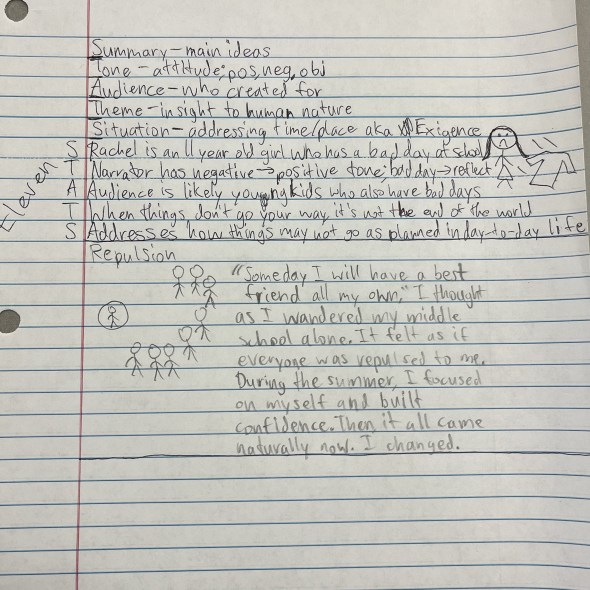 Summary - main ideas
Tone - attitude: pos, neg, obj
Audience - who created for
Theme - insight to human nature
Situation - addressing time/place aka Exigence
Eleven
S Rachel is an 11 year old girl who has a bad day at school
T Narrator has negative → positive tone; bad day → reflect
A Audience is likely young kids who also have bad days
T When things don't go your way, it's not the end of the world
S Addresses how things may not go as planned in day-to-day life
Repulsion
"Someday I will have a best
friend all my own," I thought
as I wandered my middle
school alone. It felt as if
everyone was repulsed to me.
During the summer, I focused
on myself and built
confidence. Then it all came
naturally now. I changed.